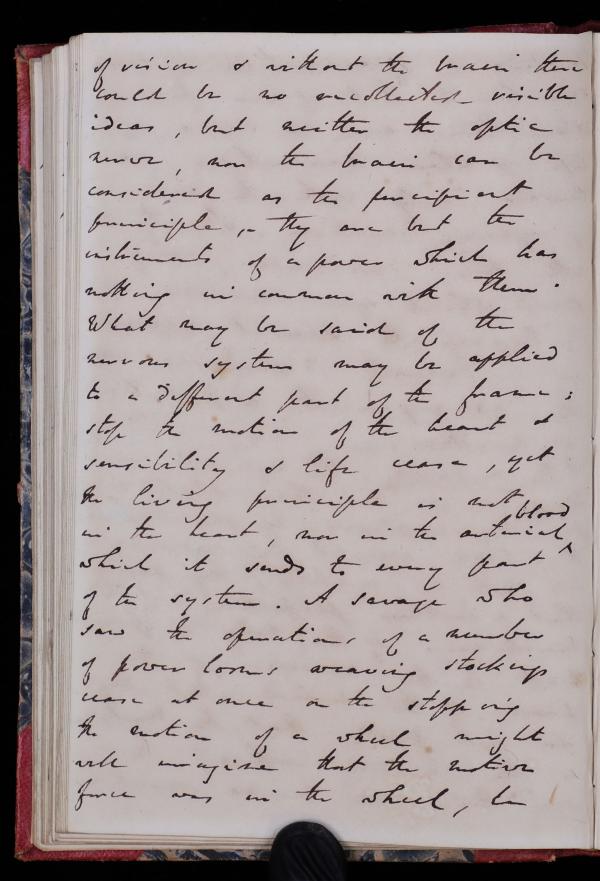 of vision & without the brain there
could be no recollected visible
ideas, but neither the optic
nerve, nor the brain can be
considered as the percipient
principle, – they are but the
instruments of a power which has
nothing in common with them.
What may be said of the
nervous system may be applied
to a different part of the frame;
stop the motion of the heart &
sensibility & life cease, yet
the living principle is not
blood
in the heart, nor in the arterial ^
which it sends to every part
of the system. A savage who
saw the operations of a number
of power looms weaving stockings
cease at once on the stopping
the motion of a wheel might
well imagine that the motive
force was in the wheel, he